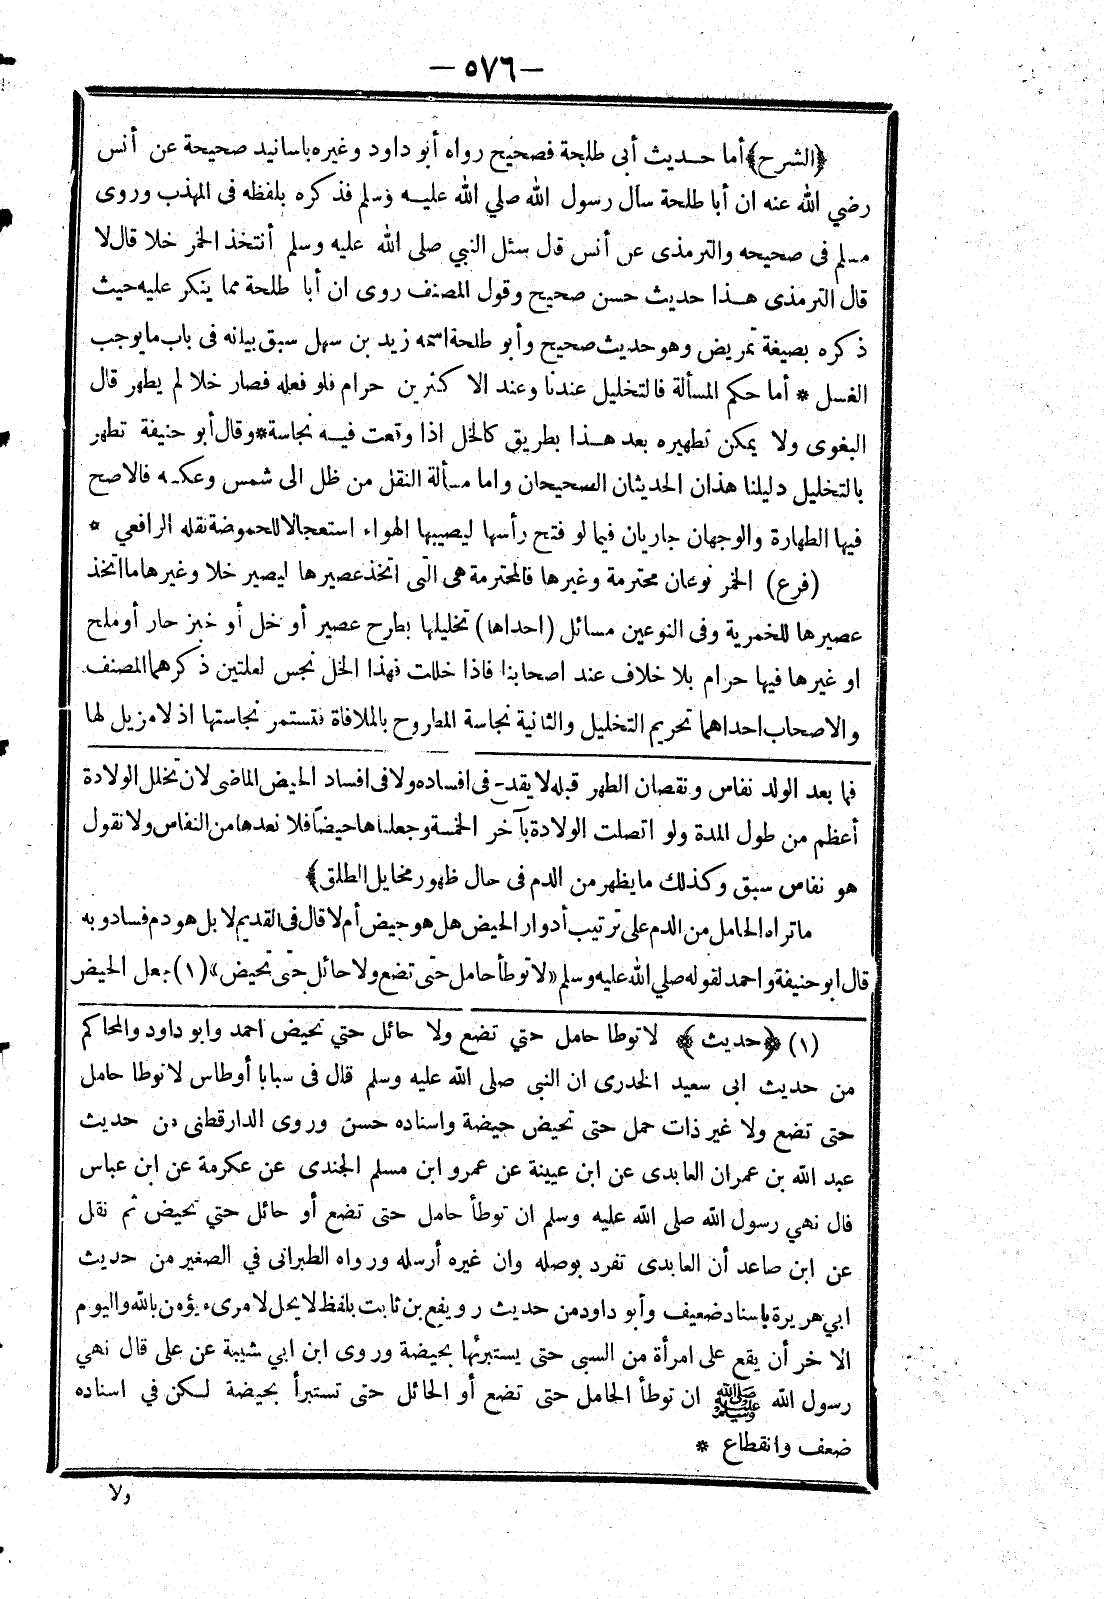 — ٥٧٦ —
﴿الشرح﴾ أما حديث أبى طلحة فصحيح رواه أبو داود وغيره باسانيد صحيحة عن أنس
رضي الله عنه ان أبا طلحة سأل رسول الله صلي الله عليه وسلم فذكره بلفظه فى المهذب وروى
مسلم فى صحيحه والترمذى عن أنس قال سئل النبي صلى الله عليه وسلم أنتخذ الخمر خلا قال لا
قال الترمذى هذا حديث حسن صحيح وقول المصنف روى ان أبا طلحة مما ينكر عليه حيث
ذكره بصيغة تمريض وهو حديث صحيح وأبو طلحة اسمه زيد بن سهل سبق بيانه فى باب ما يوجب
الغسل * أما حكم المسألة فالتخليل عندنا وعند الاكثرين حرام فلو فعله فصار خلا لم يطهر قال
البغوى ولا يمكن تطهيره بعد هذا بطريق كالخل اذا وقعت فيه نجاسة * وقال أبو حنيفة تطهر
بالتخليل دليلنا هذان الحديثان الصحيحان واما مسألة النقل من ظل الى شمس وعكسه فالاصح
فيها الطهارة والوجهان جاريان فيما لو فتح رأسها ليصيبها الهواء استعجالا للحموضة نقله الرافعي *
(فرع) الخمر نوعان محترمة وغيرها فالمحترمة هى التى اتخذ عصيرها ليصير خلا وغيرها ما اتخذ
عصيرها للخمرية وفى النوعين مسائل (احداها) تخليلها بطرح عصير أو خل أو خبز حار أو ملح
او غيرها فيها حرام بلا خلاف عند اصحابنا فاذا خللت فهذا الخل نجس لعلتين ذكرهما المصنف
والاصحاب احداهما تحريم التخليل والثانية نجاسة المطروح بالملاقاة فتستمر نجاستها اذ لا مزيل لها
فما بعد الولد نفاس ونقصان الطهر قبله لا يقدح فى افساده ولا فى افساد الحيض الماضى لان تخلل الولادة
أعظم من طول المدة ولو اتصلت الولادة بآخر الخمسة وجعلناها حيضاً فلا نعدها من النفاس ولا نقول
هو نفاس سبق وكذلك ما يظهر من الدم فى حال ظهور مخايل الطلق ﴾
ما تراه الحامل من الدم على ترتيب أدوار الحيض هل هو حيض أم لا قال فى القديم لا بل هو دم فساد وبه
قال ابو حنيفة واحمد لقوله صلي الله عليه وسلم «لا توطأ حامل حتى تضع ولا حائل حتى تحيض» (١) جعل الحيض
(١) ﴿حديث﴾ لا توطا حامل حتي تضع ولا حائل حتي تحيض احمد وابو داود والحاكم
من حديث ابى سعيد الخدرى ان النبى صلى الله عليه وسلم قال فى سبايا أوطاس لا توطا حامل
حتى تضع ولا غير ذات حمل حتى تحيض حيضة واسناده حسن وروى الدارقطنى من حديث
عبد الله بن عمران العابدى عن ابن عيينة عن عمرو ابن مسلم الجندى عن عكرمة عن ابن عباس
قال نهي رسول الله صلى الله عليه وسلم ان توطأ حامل حتى تضع أو حائل حتي تحيض ثم نقل
عن ابن صاعد أن العابدى تفرد بوصله وان غيره أرسله ورواه الطبرانى في الصغير من حديث
ابي هريرة باسناد ضعيف وأبو داود من حديث رويفع بن ثابت بلفظ لا يحل لامرىء يؤمن بالله واليوم
الاخر أن يقع على امرأة من السبى حتى يستبرئها بحيضة وروى ابن ابي شيبة عن على قال نهي
رسول الله ﷺ ان توطأ الحامل حتى تضع أو الحائل حتى تستبرأ بحيضة لكن في اسناده
ضعف وانقطاع *
ولا